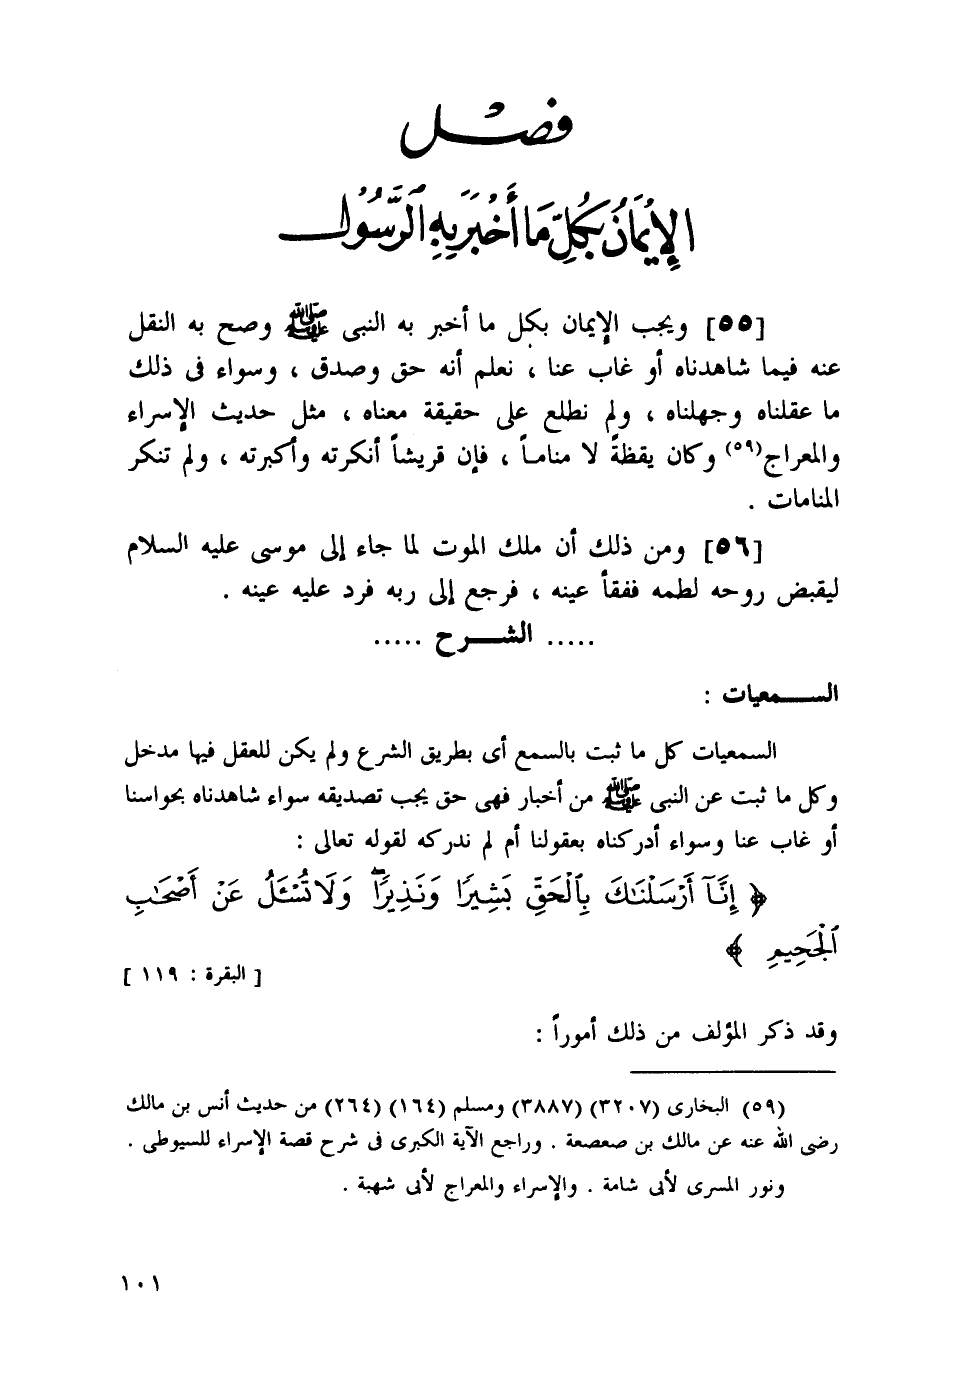 فصل
الإيمان بكل ما أخبر به الرسول
[٥٥] ويجب الإيمان بكل ما أخبر به النبى ﷺ وصح به النقل
عنه فيما شاهدناه أو غاب عنا ، نعلم أنه حق وصدق ، وسواء فى ذلك
ما عقلناه وجهلناه ، ولم نطلع على حقيقة معناه ، مثل حديث الإسراء
والمعراج(٥٩) وكان يقظةً لا مناماً ، فإن قريشاً أنكرته وأكبرته ، ولم تنكر
المنامات .
[٥٦] ومن ذلك أن ملك الموت لما جاء إلى موسى عليه السلام
ليقبض روحه لطمه ففقأ عينه ، فرجع إلى ربه فرد عليه عينه .
..... الشـــرح .....
الســـمعيات :
السمعيات كل ما ثبت بالسمع أى بطريق الشرع ولم يكن للعقل فيها مدخل
وكل ما ثبت عن النبى ﷺ من أخبار فهى حق يجب تصديقه سواء شاهدناه بحواسنا
أو غاب عنا وسواء أدركناه بعقولنا أم لم ندركه لقوله تعالى :
﴿ إِنَّآ أَرْسَلْنَٰكَ بِٱلْحَقِّ بَشِيرًا وَنَذِيرًاۖ وَلَا تُسْـَٔلُ عَنْ أَصْحَٰبِ
ٱلْجَحِيمِ ﴾
[ البقرة : ١١٩ ]
وقد ذكر المؤلف من ذلك أموراً :
(٥٩) البخارى (٣٢٠٧) (٣٨٨٧) ومسلم (١٦٤) (٢٦٤) من حديث أنس بن مالك
رضى الله عنه عن مالك بن صعصعة . وراجع الآية الكبرى فى شرح قصة الإسراء للسيوطى .
ونور المسرى لأبى شامة . والإسراء والمعراج لأبى شهبة .
١٠١